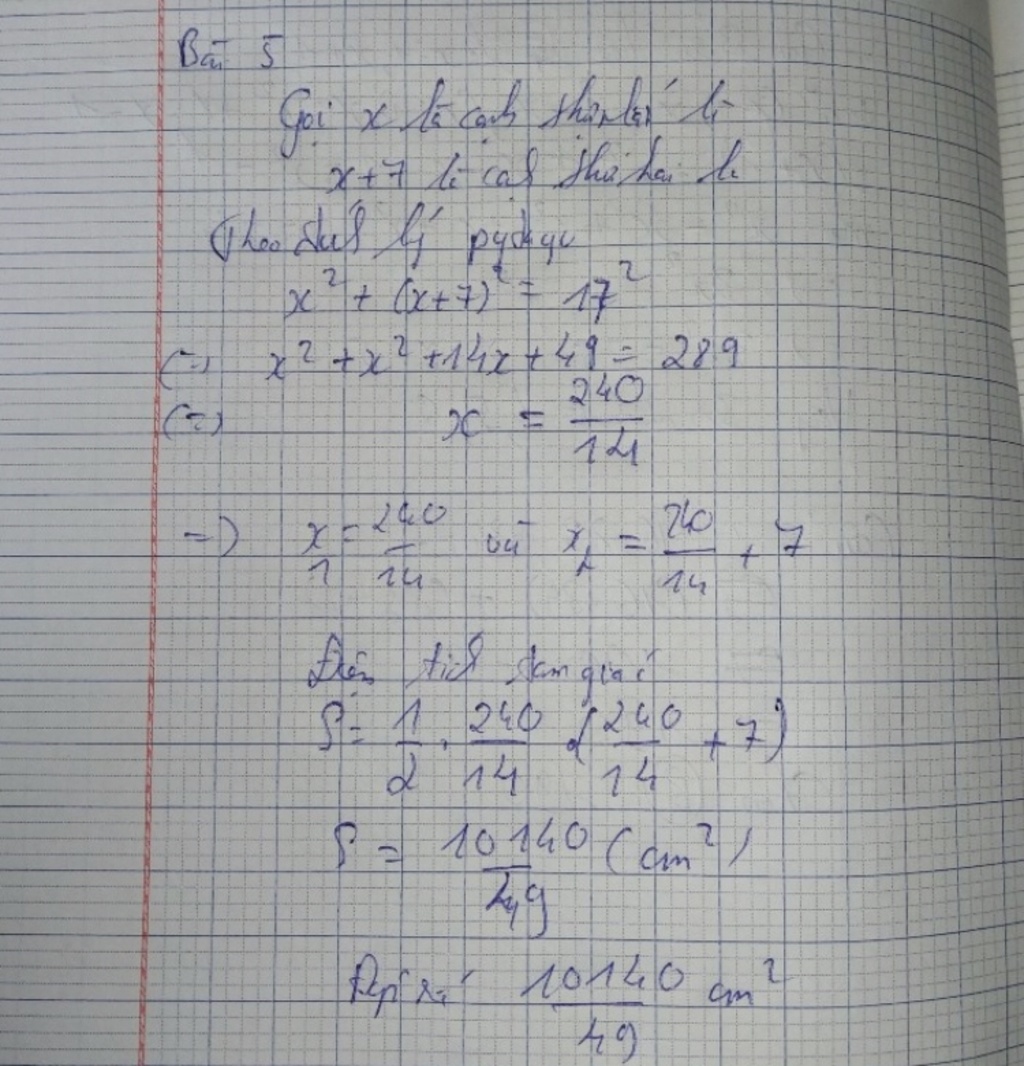 Bài 5
Gọi x là cạnh thứ nhất là
x+7 là cạnh thứ hai là
Theo định lý pytago
x² + (x+7)² = 17²
(=) x² + x² + 14x + 49 = 289
(=) x = 240/14
=) x₁ = 240/14 và x₂ = 240/14 + 7
Diện tích tam giác
S = 1/2 . 240/14 . (240/14 + 7)
S = 10140/49 (cm²)
Đáp số 10140/49 cm²